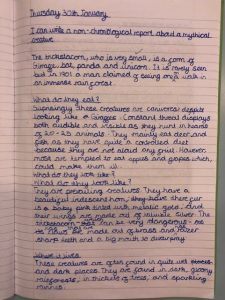 Thursday 30th January
I can write a non-chronological report about a mythical creature
The tricktacorn, who is very small, is a form of
Giraffe, bat, panda and unicorn. It is rarely seen
but in 1901 a man claimed of seeing one walk in
an immense rainforest.
What do they eat?
Suprisingly these creatures are carnivores despite
looking like a Giraffe. Constant threat displays
both audible and visible as they hunt in herds
of 20-25 animals. They mainly eat deer and
fish as they have quite a controlled diet
because they are not afraid any prey. However
most are tempted to eat apples and grapes which
could make them ill.
What do they look like?
What do they look like?
They are prevailing creatures. They have a
beautiful iridescent horn, they have their fur
is a baby pink tinted with metallic gold. And
their wings are made out of valuable silver. The
can be very dangerous as
its claws are made out of brass and razor
sharp teeth and a big mouth to overpay
These creatures are often found in quite wet
and dark places. They are found in dark, gloomy
in thickets of trees, and sparkling